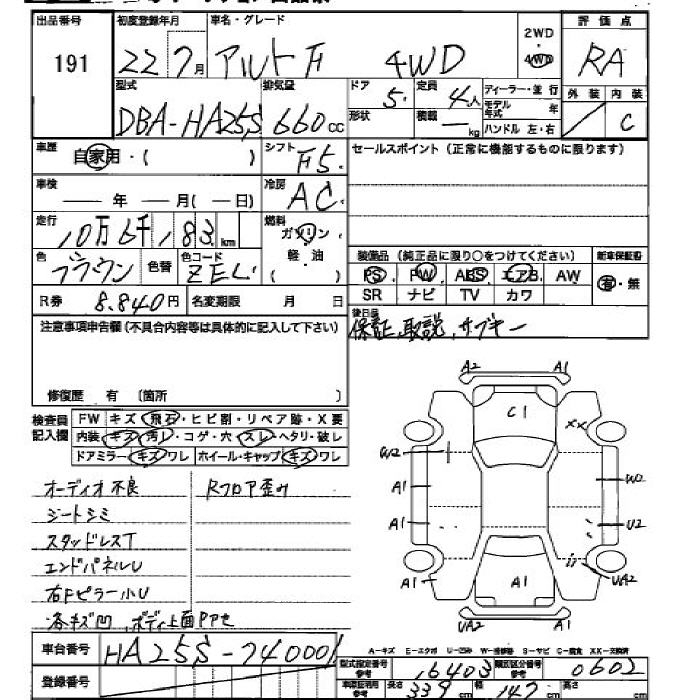 出品番号 初度登録年月 車名・グレード 2WD・4WD 評価点
191 22 7月 アルト F 4WD RA
型式 排気量 ドア 定員 ディーラー・並行 外装 内装
DBA-HA25S 660cc 5. 4人 モデル年式 C
形状 積載 — kg ハンドル 左・右
車歴 自家用・( ) シフト F5. セールスポイント(正常に機能するものに限ります)
車検 — 年 — 月(— 日) 冷房 AC.
走行 10万6千183km 燃料 ガソリン
色 ブラウン 色替 色コード ZEL 軽・油 装備品(純正品に限り○をつけてください) 新車保証書
PS PW ABS エアB AW 有・無
R券 8.840円 名変期限 月 日 SR ナビ TV カワ
注意事項申告欄(不具合内容等は具体的に記入して下さい) 後日品
保証,取説,サブキー
修復歴 有 〔箇所 〕
検査員記入欄 FW キズ・飛石・ヒビ割・リペア跡・X要
内装・キズ・汚し・コゲ・穴・スレ・ヘタリ・破レ
ドアミラー・キズ・ワレ ホイール・キャップ・キズ・ワレ
オーディオ不良 Rフロア歪み
シートシミ
スタッドレスT
エンドパネルU
右Fピラー小U
各キズ凹 ボディ上面PPセ
A2 A1
C1 XX
W2 W2
A1
A1 U2
A1 A1 UA2
UA2 A1
A-キズ E-エクボ U-凹み W-補修跡 S-サビ C-腐食 XX-交換済
車台番号 HA25S-740001 型式指定番号 参考 16403 類別区分番号 参考 0602
登録番号 長さ 339cm 幅 147cm 高さ cm